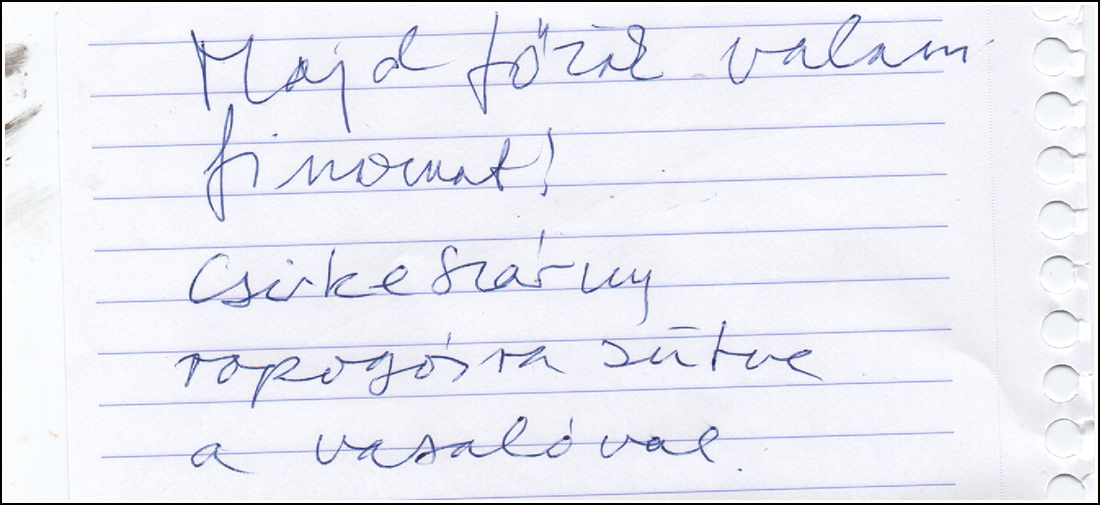 Majd főzök valami
finomat!
Csirke szárny
ropogósra sütve
a vasalóval.